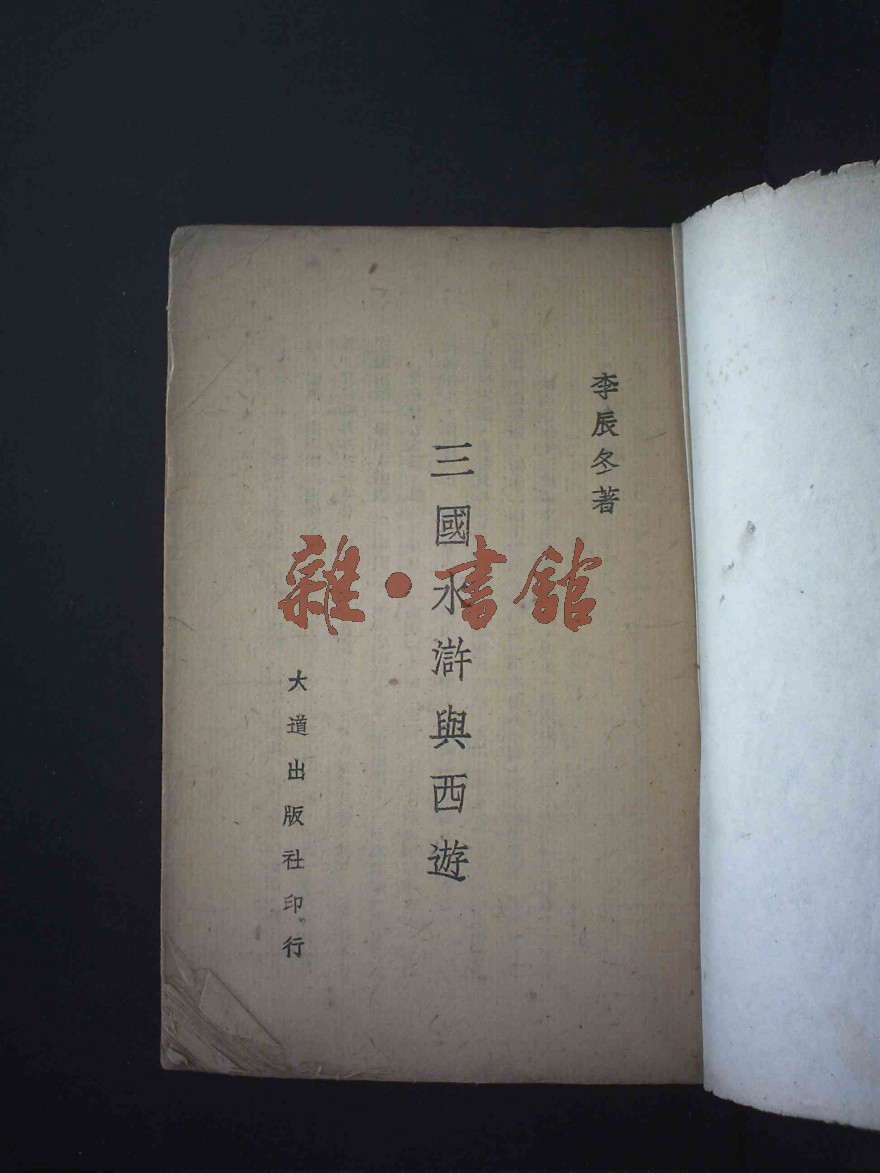 李辰冬著
三國水滸與西遊
大道出版社印行
雜·書館